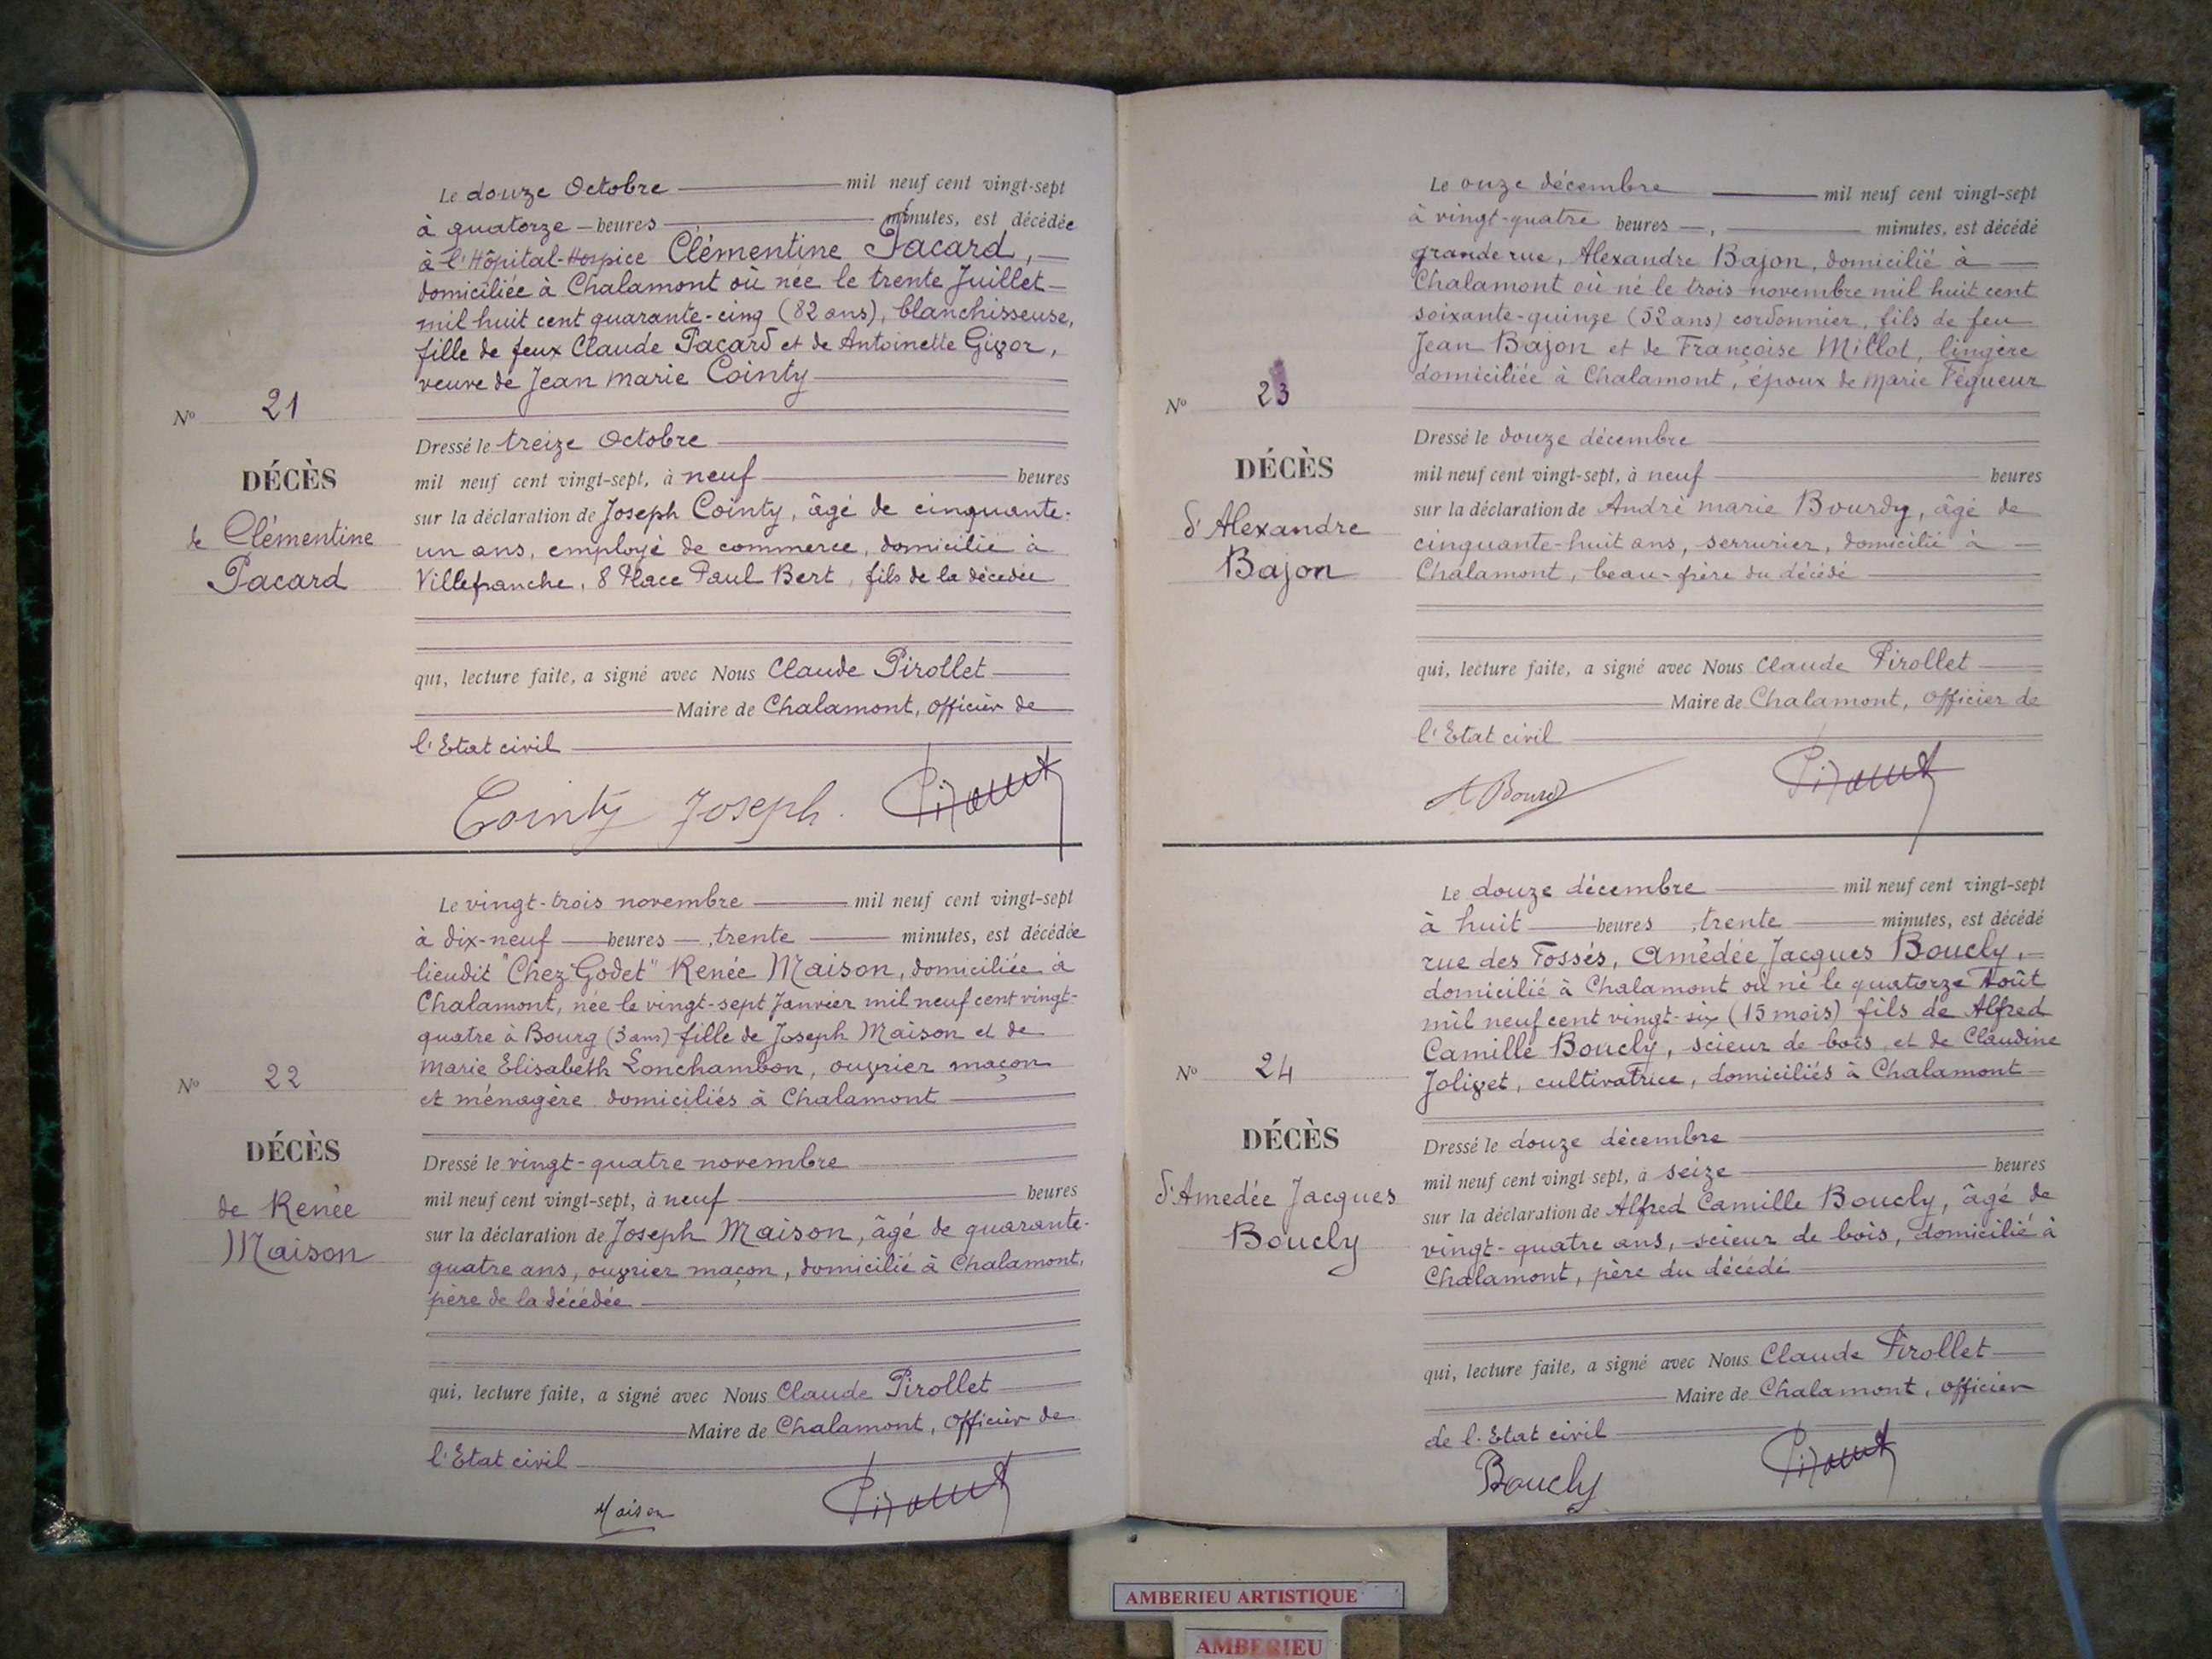 Le douze Octobre mil neuf cent vingt-sept
à quatorze heures minutes, est décédée
à l'Hôpital-Hospice Clémentine Pacard,
domiciliée à Chalamont où née le trente Juillet
mil huit cent quarante-cinq (82 ans), blanchisseuse,
fille de feux Claude Pacard et de Antoinette Givor,
veuve de Jean Marie Cointy
N° 21
Dressé le treize Octobre
DÉCÈS
mil neuf cent vingt-sept, à neuf heures
sur la déclaration de Joseph Cointy, âgé de cinquante-
de Clémentine
un ans, employé de commerce, domicilié à
Pacard
Villefranche, 8 Place Paul Bert, fils de la décédée
qui, lecture faite, a signé avec Nous Claude Pirollet
Maire de Chalamont, officier de
l'Etat civil
Cointy Joseph.
Le vingt-trois novembre mil neuf cent vingt-sept
à dix-neuf heures, trente minutes, est décédée
lieudit "Chez Godet" Renée Maison, domiciliée à
Chalamont, née le vingt-sept Janvier mil neuf cent vingt-
quatre à Bourg (3 ans) fille de Joseph Maison et de
Marie Elisabeth Lonchambon, ouvrier maçon
N° 22
et ménagère domiciliés à Chalamont
DÉCÈS
Dressé le vingt-quatre novembre
mil neuf cent vingt-sept, à neuf heures
de Renée
sur la déclaration de Joseph Maison, âgé de quarante-
Maison
quatre ans, ouvrier maçon, domicilié à Chalamont,
père de la décédée
qui, lecture faite, a signé avec Nous Claude Pirollet
Maire de Chalamont, officier de
l'Etat civil
Maison
Le onze décembre mil neuf cent vingt-sept
à vingt-quatre heures, minutes, est décédé
grande rue, Alexandre Bajon, domicilié à
Chalamont où né le trois novembre mil huit cent
soixante-quinze (52 ans) cordonnier, fils de feu
Jean Bajon et de Françoise Millot, lingère
domiciliée à Chalamont, époux de Marie Végueur
N° 23
Dressé le douze décembre
DÉCÈS
mil neuf cent vingt-sept, à neuf heures
sur la déclaration de André Marie Bourdy, âgé de
d'Alexandre
cinquante-huit ans, serrurier, domicilié à
Bajon
Chalamont, beau-frère du décédé
qui, lecture faite, a signé avec Nous Claude Pirollet
Maire de Chalamont, officier de
l'Etat civil
Le douze décembre mil neuf cent vingt-sept
à huit heures, trente minutes, est décédé
rue des Fossés, Amédée Jacques Boucly,
domicilié à Chalamont où né le quatorze Août
mil neuf cent vingt-six (15 mois) fils de Alfred
Camille Boucly, scieur de bois, et de Claudine
N° 24
Jolivet, cultivatrice, domiciliés à Chalamont
DÉCÈS
Dressé le douze décembre
mil neuf cent vingt sept, à seize heures
d'Amedée Jacques
sur la déclaration de Alfred Camille Boucly, âgé de
Boucly
vingt-quatre ans, scieur de bois, domicilié à
Chalamont, père du décédé
qui, lecture faite, a signé avec Nous Claude Pirollet
Maire de Chalamont, officier
de l'Etat civil
Boucly
AMBERIEU ARTISTIQUE
AMBERIEU